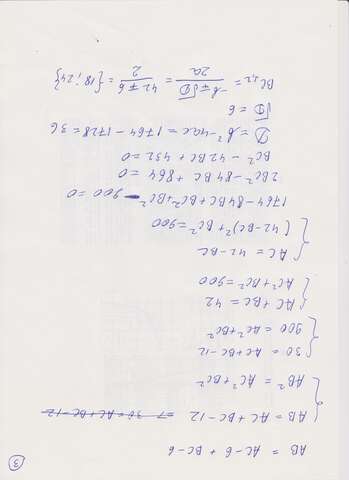 3
AB = AC-6 + BC-6
AB = AC + BC -12 ⇒ 30 = AC+BC-12
AB² = AC² + BC²
30 = AC+BC-12
900 = AC²+BC²
AC + BC = 42
AC²+BC²=900
AC = 42-BC
(42-BC)²+BC²=900
1764-84BC+BC²+BC²-900=0
2BC²-84BC+864=0
BC² - 42BC + 432=0
D = b²-4ac = 1764-1728=36
√D = 6
BC₁,₂ = -b∓√D / 2a = 42∓6 / 2 = {18; 24}